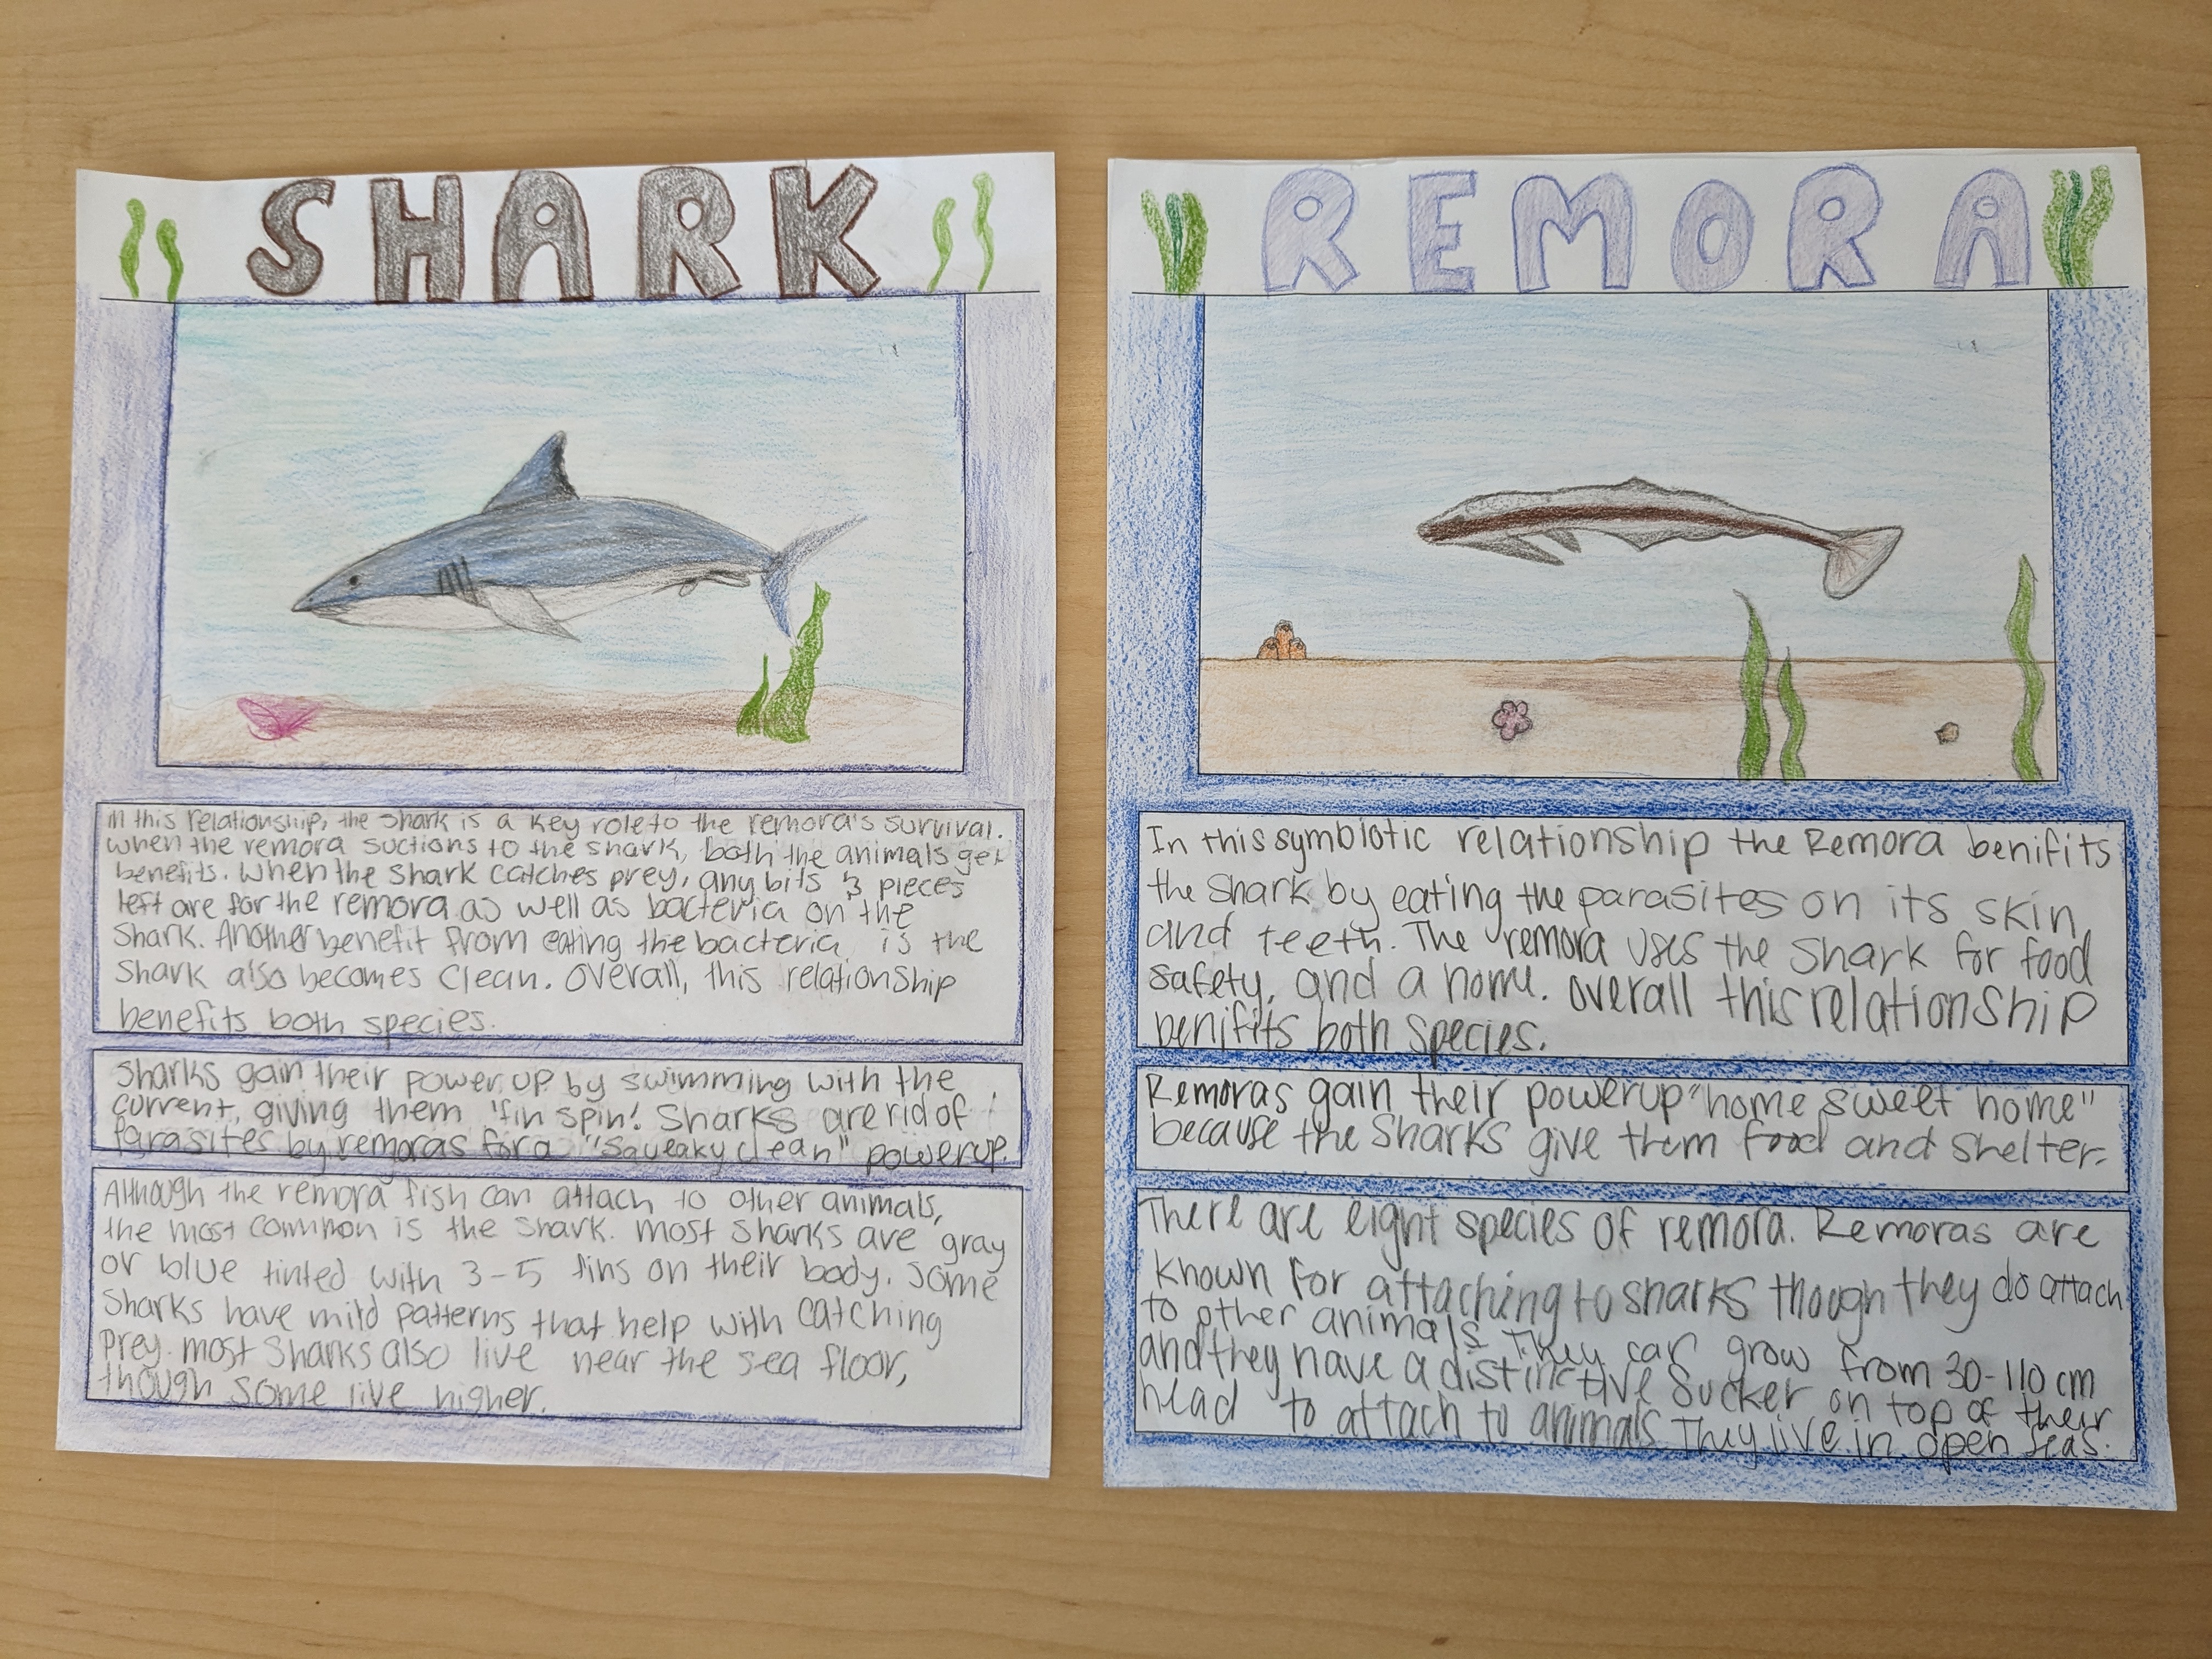 SHARK
in this relationship, the shark is a key role to the remora's survival.
when the remora suctions to the shark, both the animals get
benefits. When the shark catches prey, any bits & pieces
left are for the remora as well as bacteria on the
shark. Another benefit from eating the bacteria is the
shark also becomes clean. overall, this relationship
benefits both species.
Sharks gain their power up by swimming with the
current, giving them 'fin spin'. Sharks are rid of
parasites by remoras for a "squeaky clean" powerup.
Although the remora fish can attach to other animals,
the most common is the shark. most sharks are gray
or blue tinted with 3-5 fins on their body. some
sharks have mild patterns that help with catching
prey. most sharks also live near the sea floor,
though some live higher.
REMORA
In this symbiotic relationship the Remora benifits
the shark by eating the parasites on its skin
and teeth. The remora uses the shark for food
safety, and a home. overall this relationship
benifits both species.
Remoras gain their powerup "home sweet home"
because the sharks give them food and shelter.
There are eight species of remora. Remoras are
known for attaching to sharks though they do attach
to other animals. They can grow from 30-110 cm
and they have a distinctive sucker on top of their
head to attach to animals. They live in open seas.